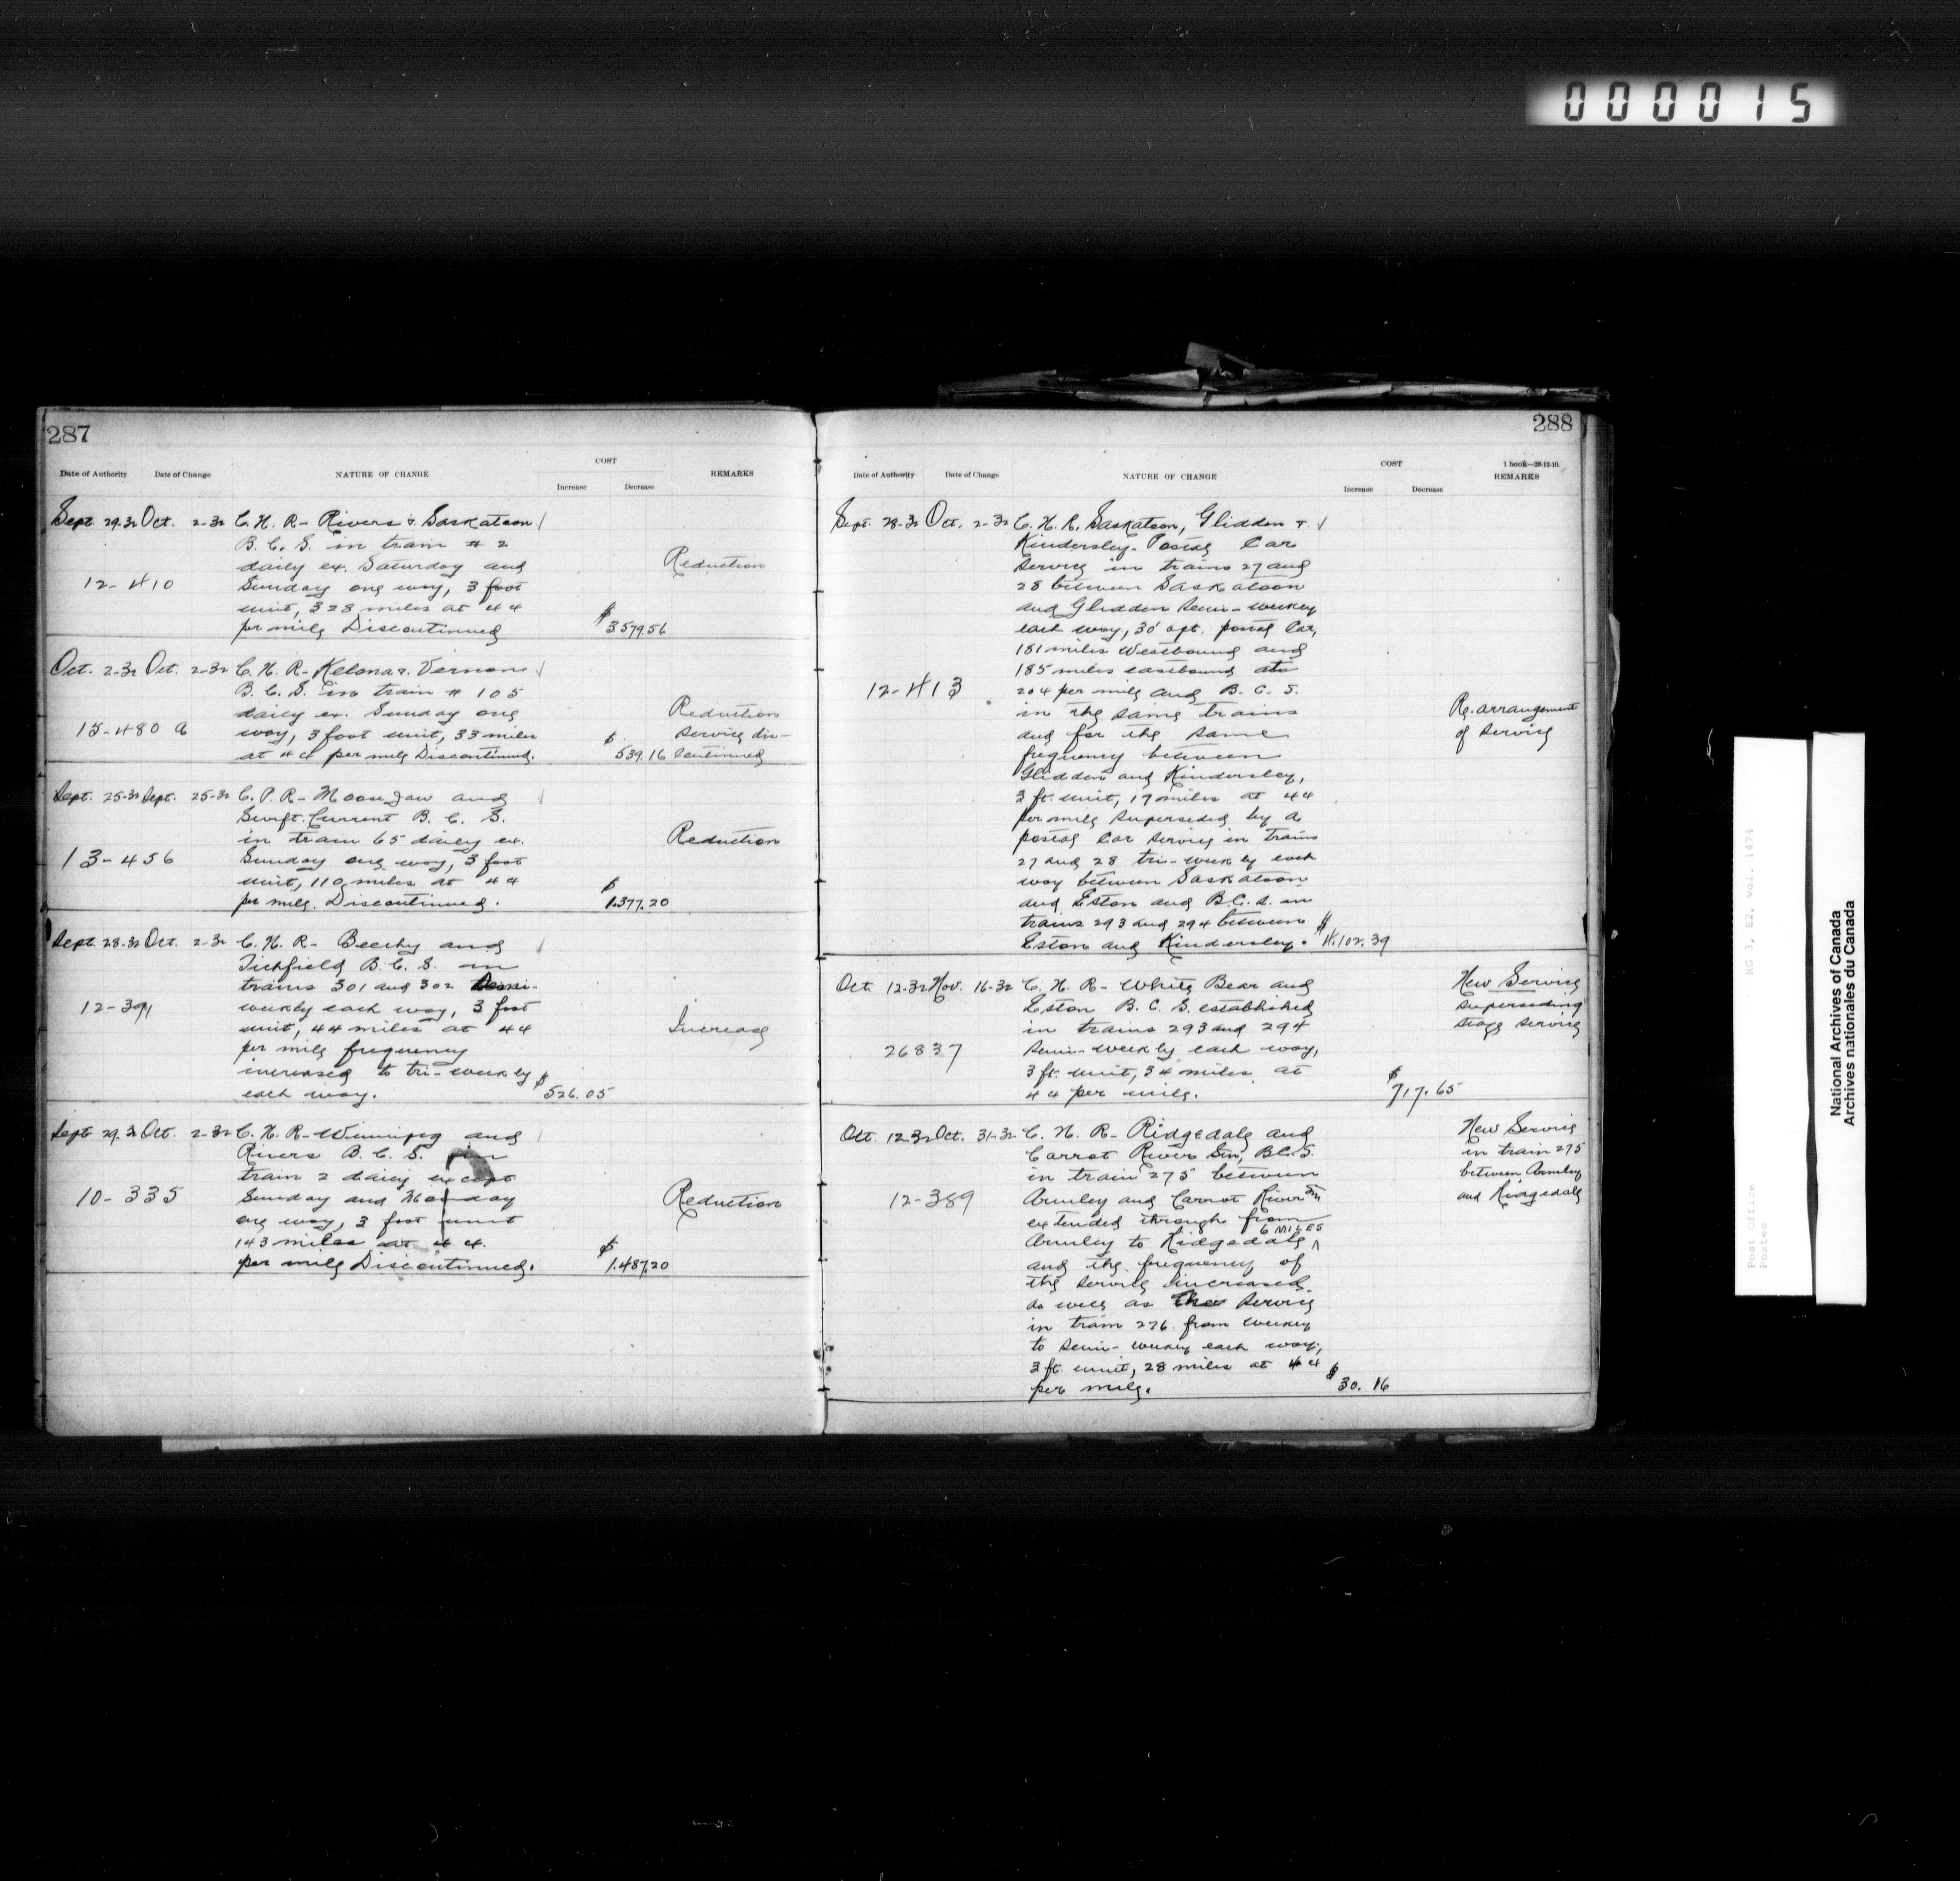 000015
287
Date of Authority Date of Change NATURE OF CHANGE COST REMARKS
Increase Decrease
Sept. 29-32 Oct. 2-32 C. N. R - Rivers & Saskatoon
B. C. S. in train # 2
daily ex. Saturday and
Reduction
12-410 Sunday one way, 3 foot
unit, 328 miles at 44
per mile Discontinued $3.579.56
Oct. 2-32 Oct. 2-32 C. N. R - Kelona & Vernon
B. C. S. in train # 105
daily ex. Sunday one Reduction
15-480 a way, 3 foot unit, 33 miles Service dis-
at 44 per mile Discontinued. $539.16 continued
Sept. 25-32 Sept. 25-32 C. P. R - Moose Jaw and
Swift Current B. C. S.
in train 65 daily ex. Reduction
13-456 Sunday one way, 3 foot
unit, 110 miles at 44
per mile. Discontinued. $1.377.20
Sept. 28-32 Oct. 2-32 C. N. R - Beechy and
Tichfield B. C. S. in
trains 301 and 302 Semi-
12-391 weekly each way, 3 foot
unit, 44 miles at 44 Increase
per mile frequency
increased to tri-weekly
each way. $526.05
Sept 29-32 Oct. 2-32 C. N. R - Winnipeg and
Rivers B. C. S. in
train 2 daily except
10-335 Sunday and Monday Reduction
one way, 3 foot unit
143 miles at 44.
per mile Discontinued. $1.487.20
288
1 book-28-12-10.
Date of Authority Date of Change NATURE OF CHANGE COST REMARKS
Increase Decrease
Sept. 28-32 Oct. 2-32 C. N. R. Saskatoon, Glidden &
Kindersley - Postal Car
Service in trains 27 and
28 between Saskatoon
and Glidden semi-weekly
each way, 30' apt. postal Car,
181 miles Westbound and
185 miles eastbound at
12-413 204 per mile and B. C. S.
in the same trains Re-arrangement
and for the same of Service
frequency between
Glidden and Kindersley,
3 ft. unit, 19 miles at 44
per mile superseded by a
postal Car service in trains
27 and 28 tri-weekly each
way between Saskatoon
and Eston and B.C.S. in
trains 293 and 294 between
Eston and Kindersley. $4.102.39
Oct. 12-32 Nov. 16-32 C. N. R - White Bear and New Service
Eston B. C. S. established superseding
in trains 293 and 294 stage service
26837 semi-weekly each way,
3 ft. unit, 34 miles at
44 per mile. $717.65
Oct. 12-32 Oct. 31-32 C. N. R - Ridgedale and New Service
Carrot River Sm, B.C.S. in train 275
in train 275 between between Armley
12-389 Armley and Carrot River Sm and Ridgedale
extended through from
6 MILES
Armley to Ridgedale ^
and the frequency of
the service increased
as well as the service
in train 276 from weekly
to semi-weekly each way,
3 ft. unit, 28 miles at 44
per mile. $30.16
RG 3, E2, vol. 1474
Post Office
Postes
National Archives of Canada
Archives nationales du Canada